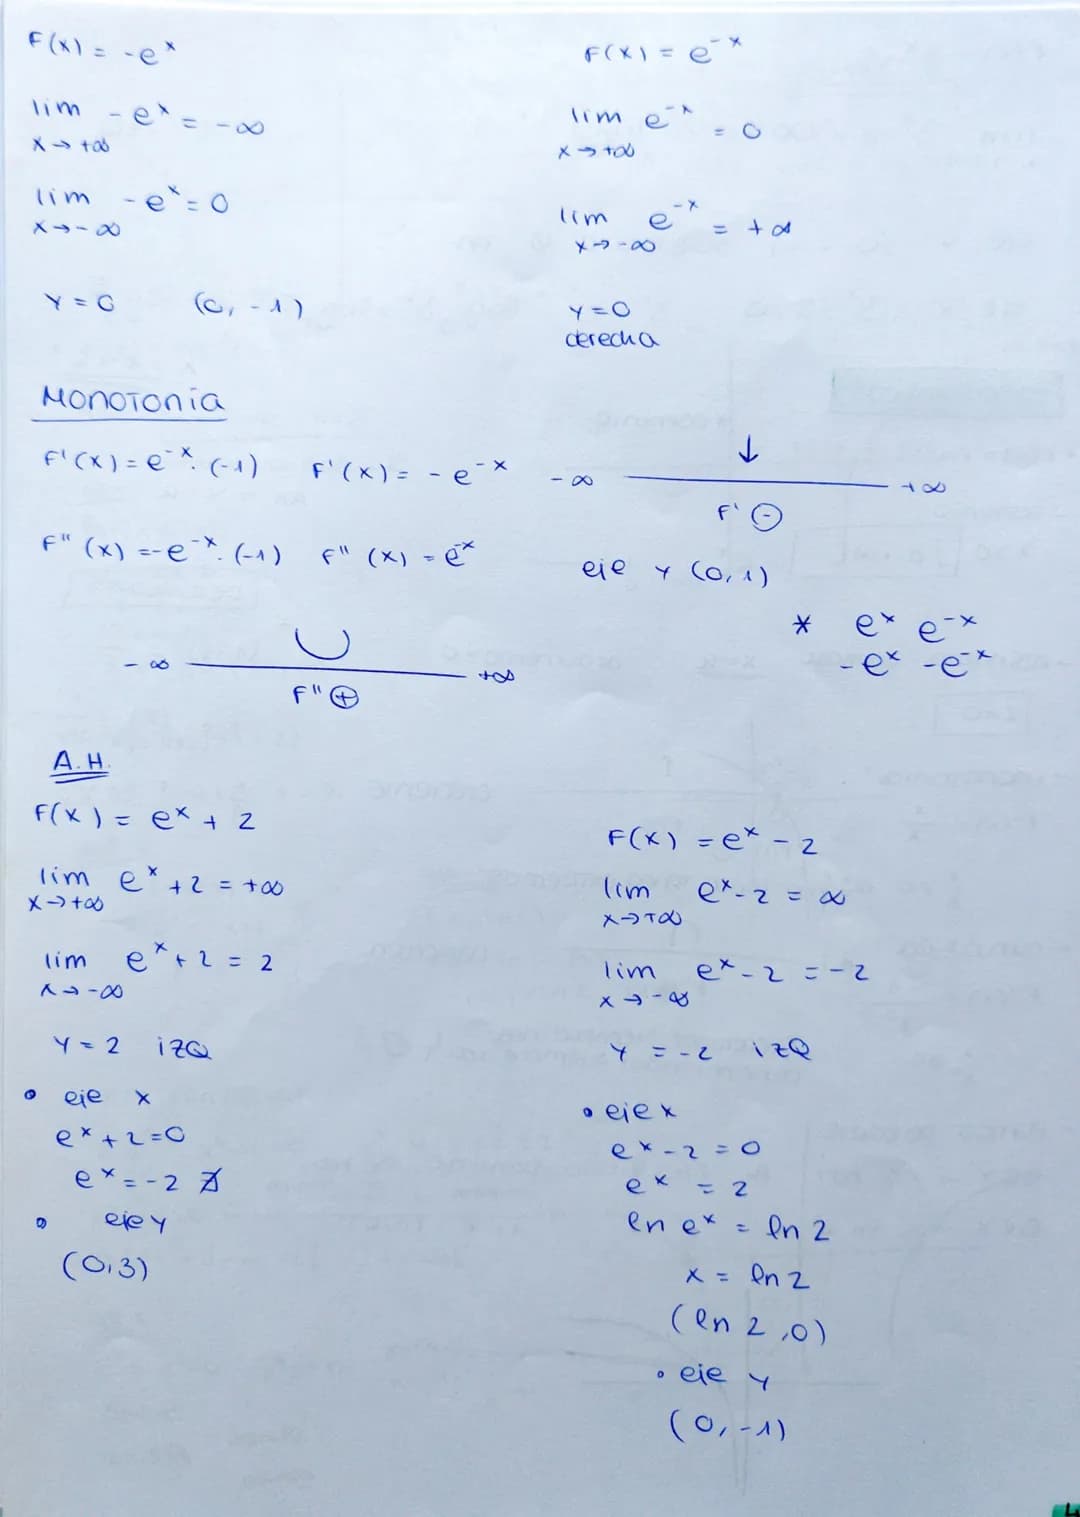 F(x) = -e^x
lim -e^x = -∞
x→+∞
lim -e^x = 0
x→-∞
y = 0 (0, -1)
F(x) = e^-x
lim e^-x = 0
x→+∞
lim e^-x = +∞
x→-∞
y = 0
derecha
Monotonía
F'(x) = e^-x · (-1) F'(x) = - e^-x
-∞ ↓ +∞
F' ⊖
F''(x) = -e^-x · (-1) F''(x) = e^-x
eje y (0, 1)
* e^x e^-x
-e^x -e^-x
-∞ ∪ +∞
F'' ⊕
A.H.
F(x) = e^x + 2
lim e^x + 2 = +∞
x→+∞
lim e^x + 2 = 2
x→-∞
y = 2 izq
• eje x
e^x + 2 = 0
e^x = -2 ∄
• eje y
(0,3)
F(x) = e^x - 2
lim e^x - 2 = ∞
x→+∞
lim e^x - 2 = -2
x→-∞
y = -2 izq
• eje x
e^x - 2 = 0
e^x = 2
ln e^x = ln 2
x = ln 2
(ln 2, 0)
• eje y
(0, -1)